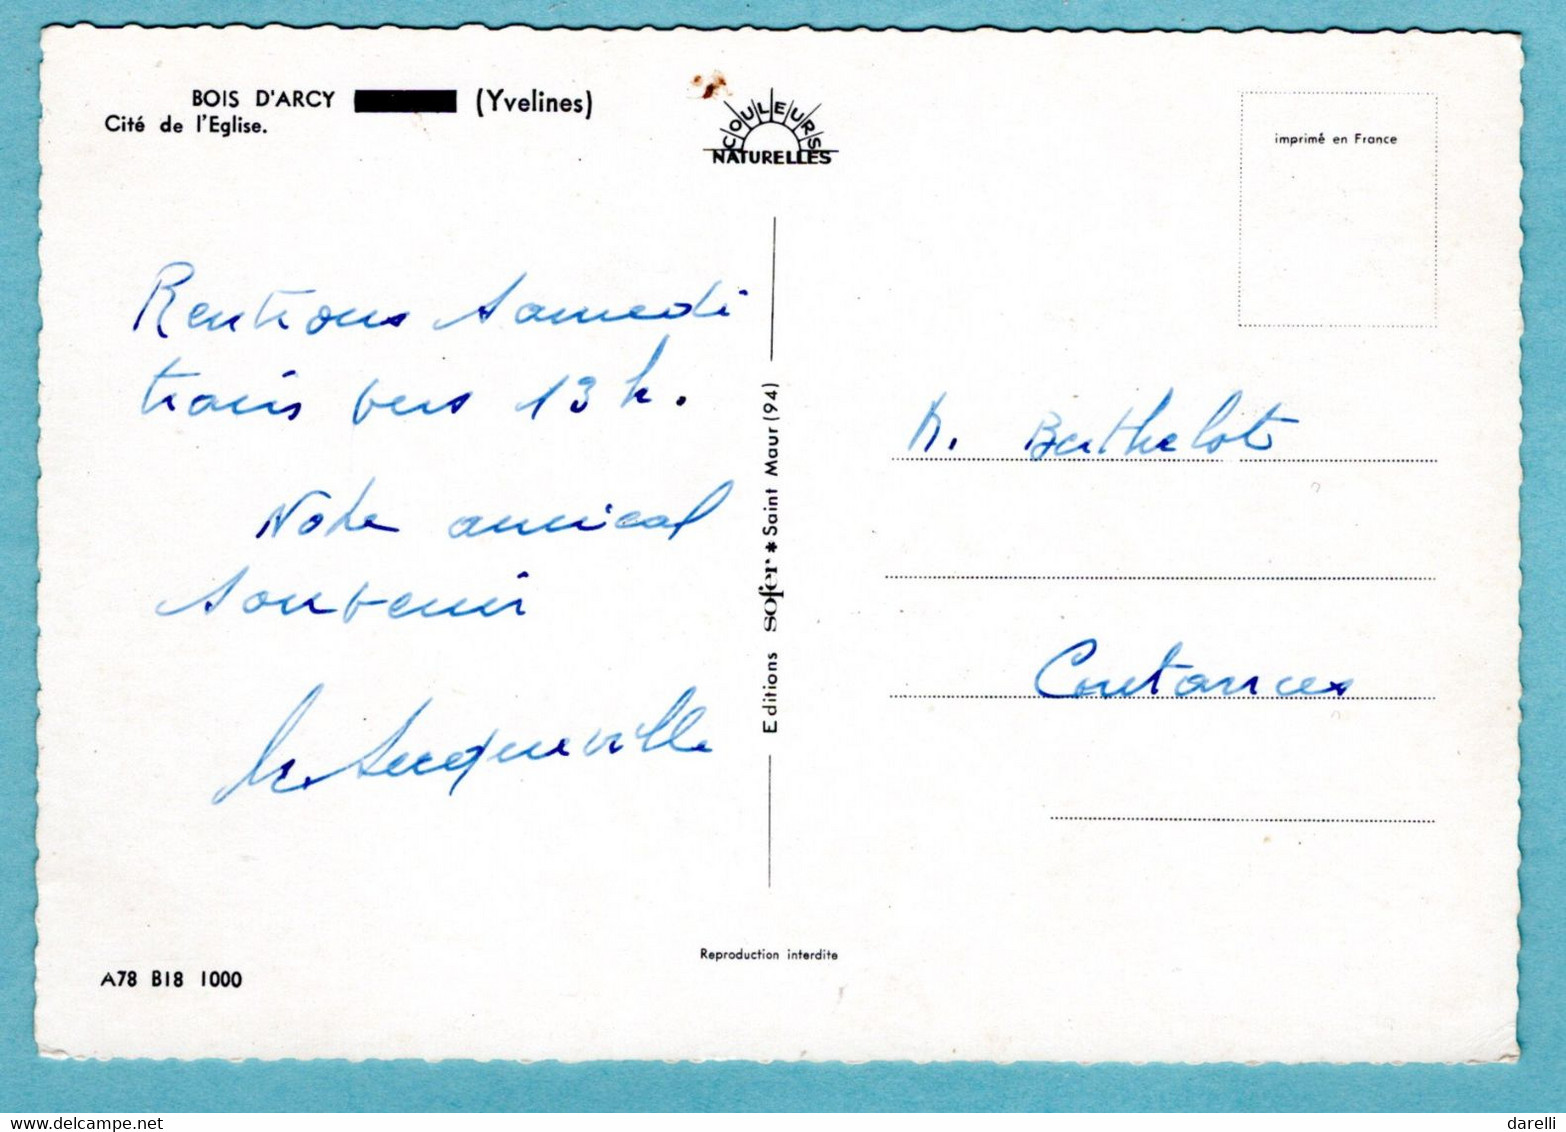 BOIS D'ARCY (Yvelines)
Cité de l'Eglise.
COULEURS
NATURELLES
imprimé en France
Rentrons samedi
train vers 13 h.
Notre amical
souvenir
Editions sofer * Saint Maur (94)
M. Berthelot
Coutances
Reproduction interdite
A78 B18 1000
delcampe.net
darelli